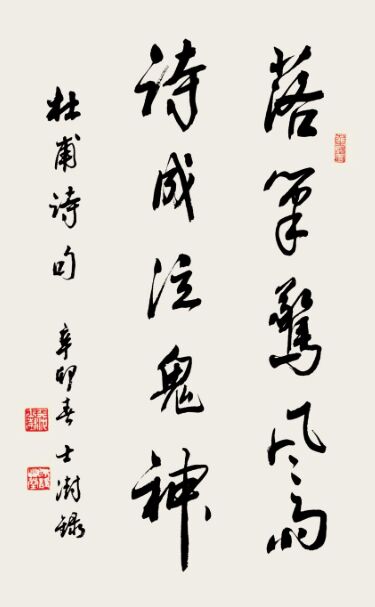 落笔惊风雨
诗成泣鬼神
杜甫诗句 辛卯春 士澍录